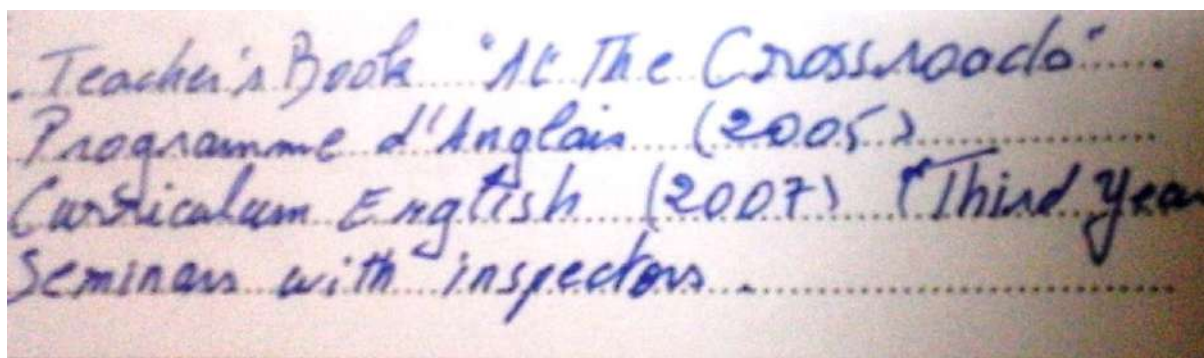 . Teacher's Book "At The Crossroads" .
Programme d'Anglais (2005)
Curriculum English (2007) (Third Year
Seminars with inspectors .